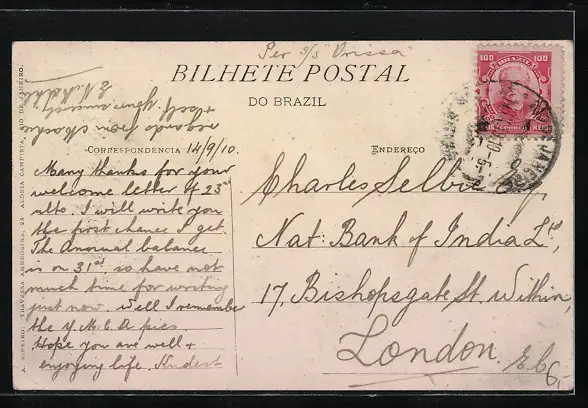 Per S/S "Orissa"
BILHETE POSTAL
DO BRAZIL
100 BRAZIL 100
REIS
CORRESPONDENCIA 14/9/10.
Many thanks for your
welcome letter of 23rd
ulto. I will write you
the first chance I get.
The Anormal balance
is on 31st, so have not
much time for writing
just now. Well I remember
the Y.M.C.A pics.
Hope you are well +
enjoying life. Kindest
regards from
Yours sincerely
ENDEREÇO
Charles Selbie
Nat: Bank of India Ld,
17, Bishopsgate St. Within,
London. E.C.
6,-
A. RIBEIRO, TRAVESSA AMBROSINA, 25 ALDEIA CAMPISTA, RIO DE JANEIRO.